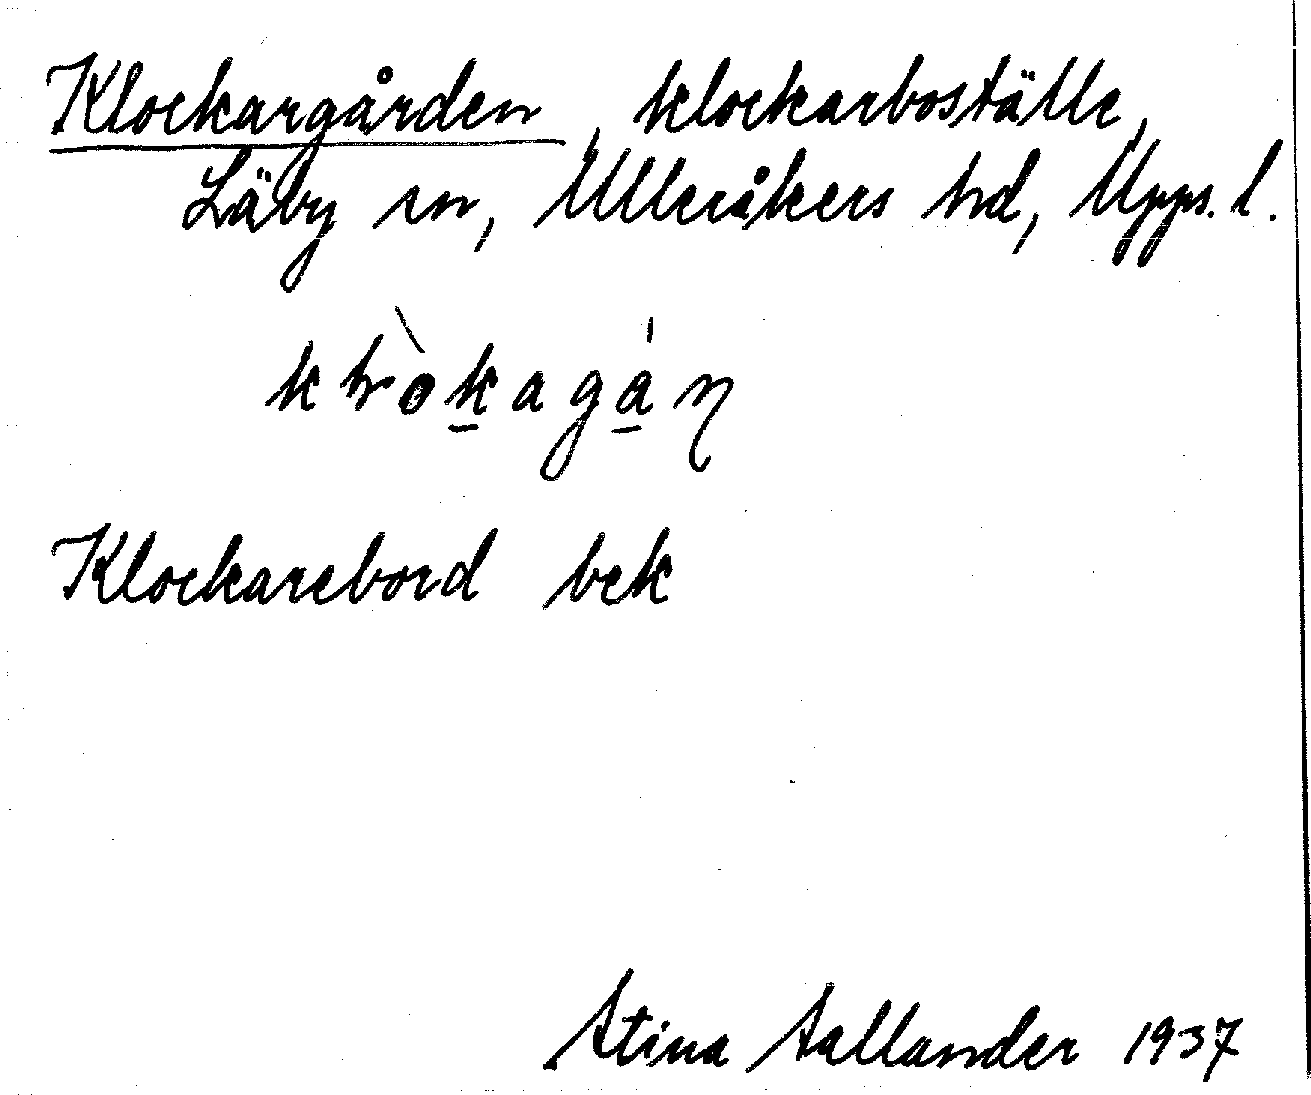 Klockargården, klockarboställe,
Läby sn, Ulleråkers hd, Upps. l.
Klockarebord bek
Stina Sallander 1937